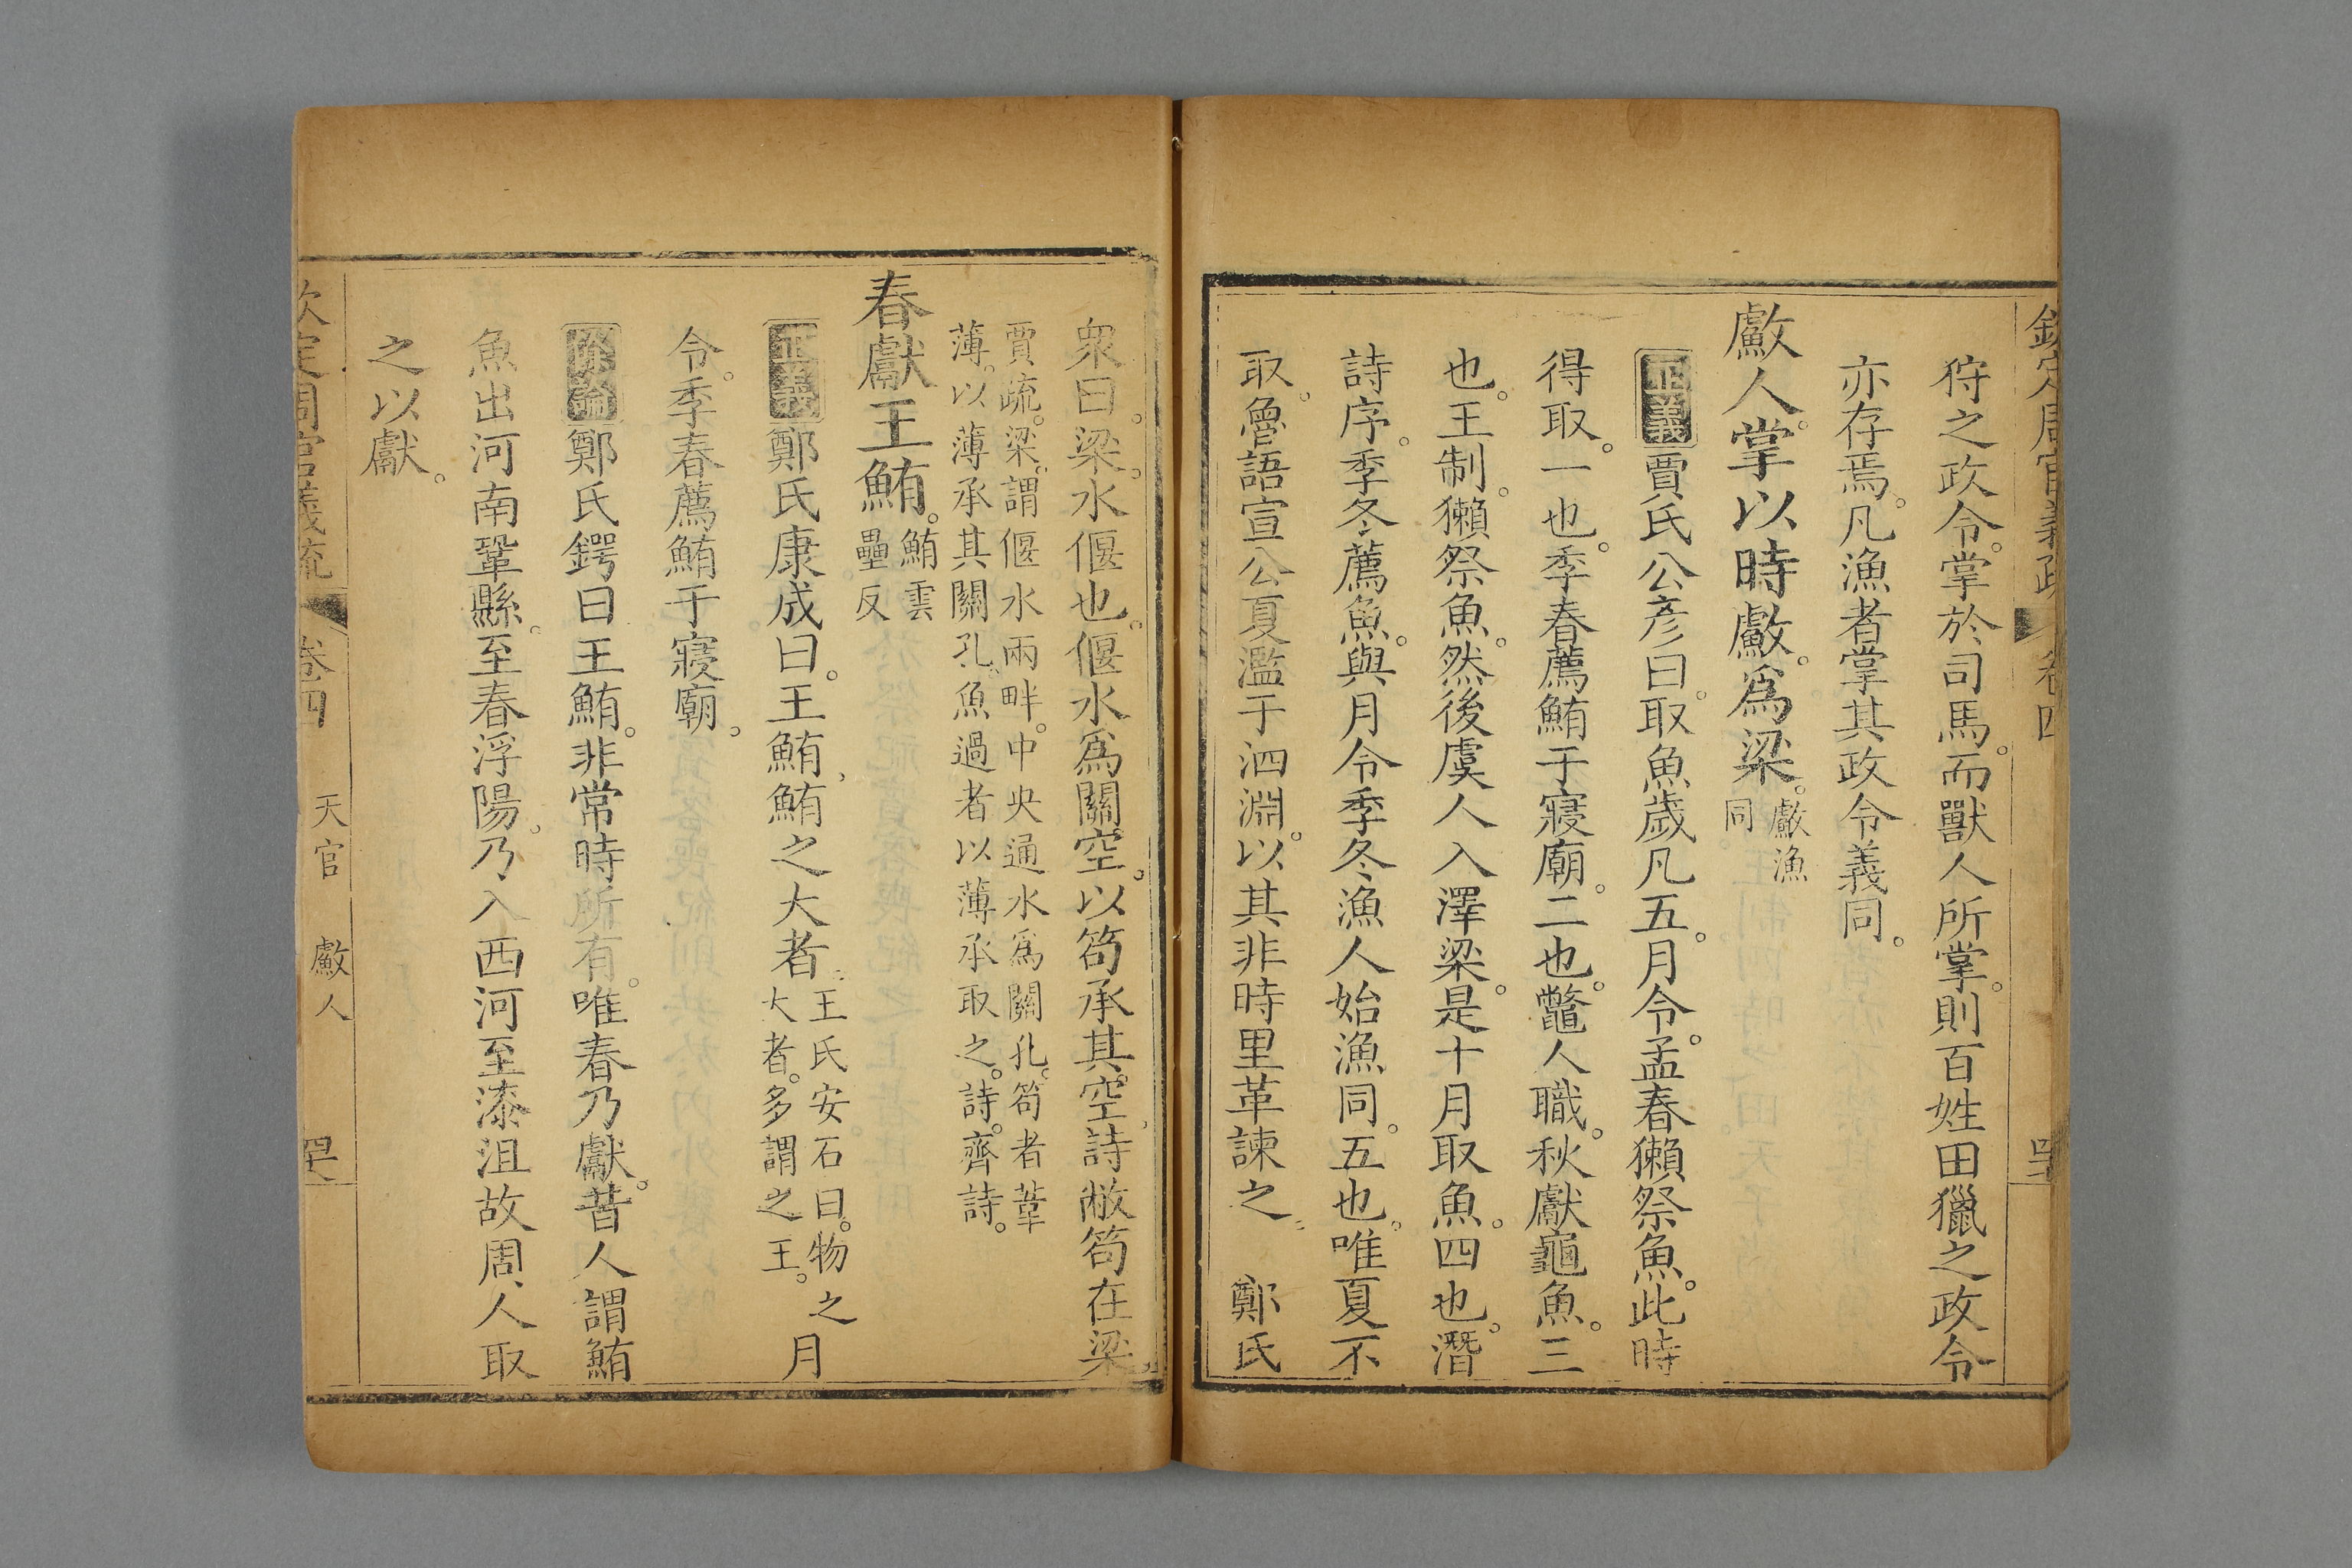 欽定周官義疏 卷四
狩之政令。掌於司馬。而獸人所掌。則百姓田獵之政令
亦存焉。凡漁者掌其政令義同。
䱷人。掌以時䱷。爲梁。䱷漁同
正義賈氏公彥曰。取魚歲凡五。月令。孟春獺祭魚。此時
得取。一也。季春薦鮪于寢廟。二也。鼈人職。秋獻龜魚。三
也。王制。獺祭魚。然後虞人入澤梁。是十月取魚。四也。潛
詩序。季冬薦魚。與月令季冬漁人始漁同。五也。唯夏不
取。魯語宣公夏濫于泗淵。以其非時里革諫之。 鄭氏
衆曰。梁。水偃也。偃水爲關空。以笱承其空。詩敝笱在梁
賈疏。梁。謂偃水兩畔。中央通水爲關孔。笱者葦
薄。以薄承其關孔。魚過者以薄承取之。詩。齊詩。
春獻王鮪。鮪雲壘反
正義鄭氏康成曰。王鮪、鮪之大者。王氏安石曰。物之大者。多謂之王。月
令。季春薦鮪于寢廟。
餘論鄭氏鍔曰王鮪。非常時所有。唯春乃獻。昔人謂鮪
魚出河南鞏縣。至春浮陽。乃入西河至漆沮故周人取
之以獻。
欽定周官義疏 卷四 天官 䱷人